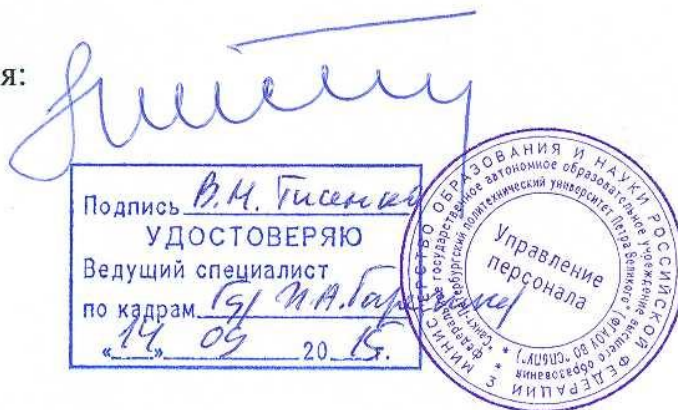 я:
Подпись В.М.
УДОСТОВЕРЯЮ
Ведущий специалист
по кадрам И.А.
«14» 09 2015г.
МИНИСТЕРСТВО ОБРАЗОВАНИЯ И НАУКИ РОССИЙСКОЙ ФЕДЕРАЦИИ
федеральное государственное автономное образовательное учреждение высшего образования
"Санкт-Петербургский политехнический университет Петра Великого" (ФГАОУ ВО "СПбПУ")
Управление
персонала